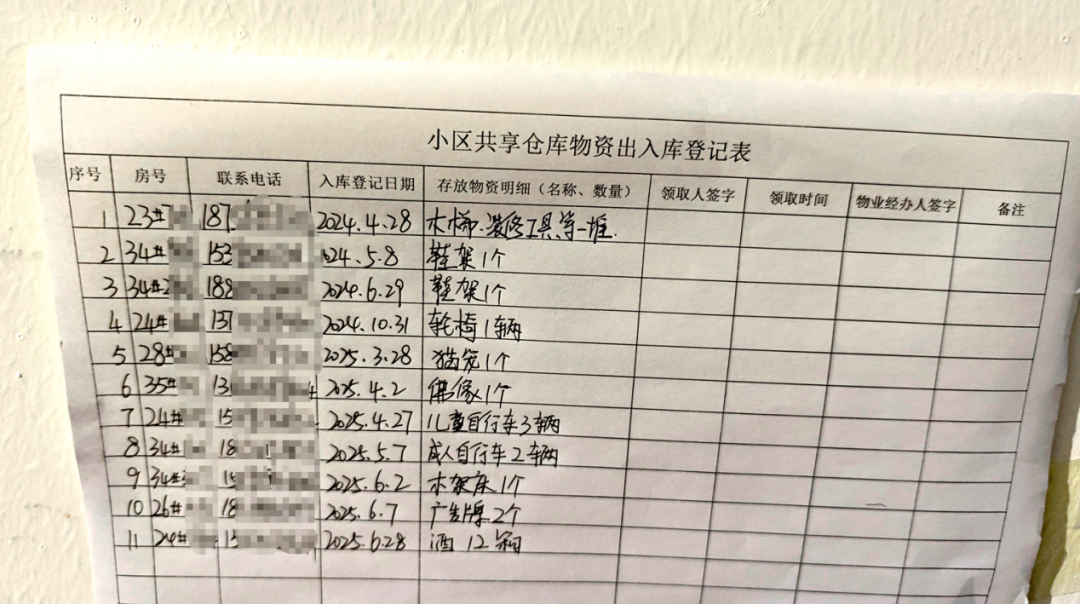 小区共享仓库物资出入库登记表
序号 房号 联系电话 入库登记日期 存放物资明细（名称、数量） 领取人签字 领取时间 物业经办人签字 备注
1 23# 187 2024.4.28 木梯、装修工具等一堆.
2 34# 153 024.5.8 鞋架1个
3 34#2 188 2024.6.29 鞋架1个
4 24# 137 2024.10.31 轮椅1辆
5 28# 158 2025.3.28 猫笼1个
6 35# 131 2025.4.2 佛像1个
7 24# 15 2025.4.27 儿童自行车3辆
8 34# 18 2025.5.7 成人自行车2辆
9 34# 15 2025.6.2 木架床1个
10 26# 18 2025.6.7 广告牌2个
11 24# 15 2025.6.28 酒12箱